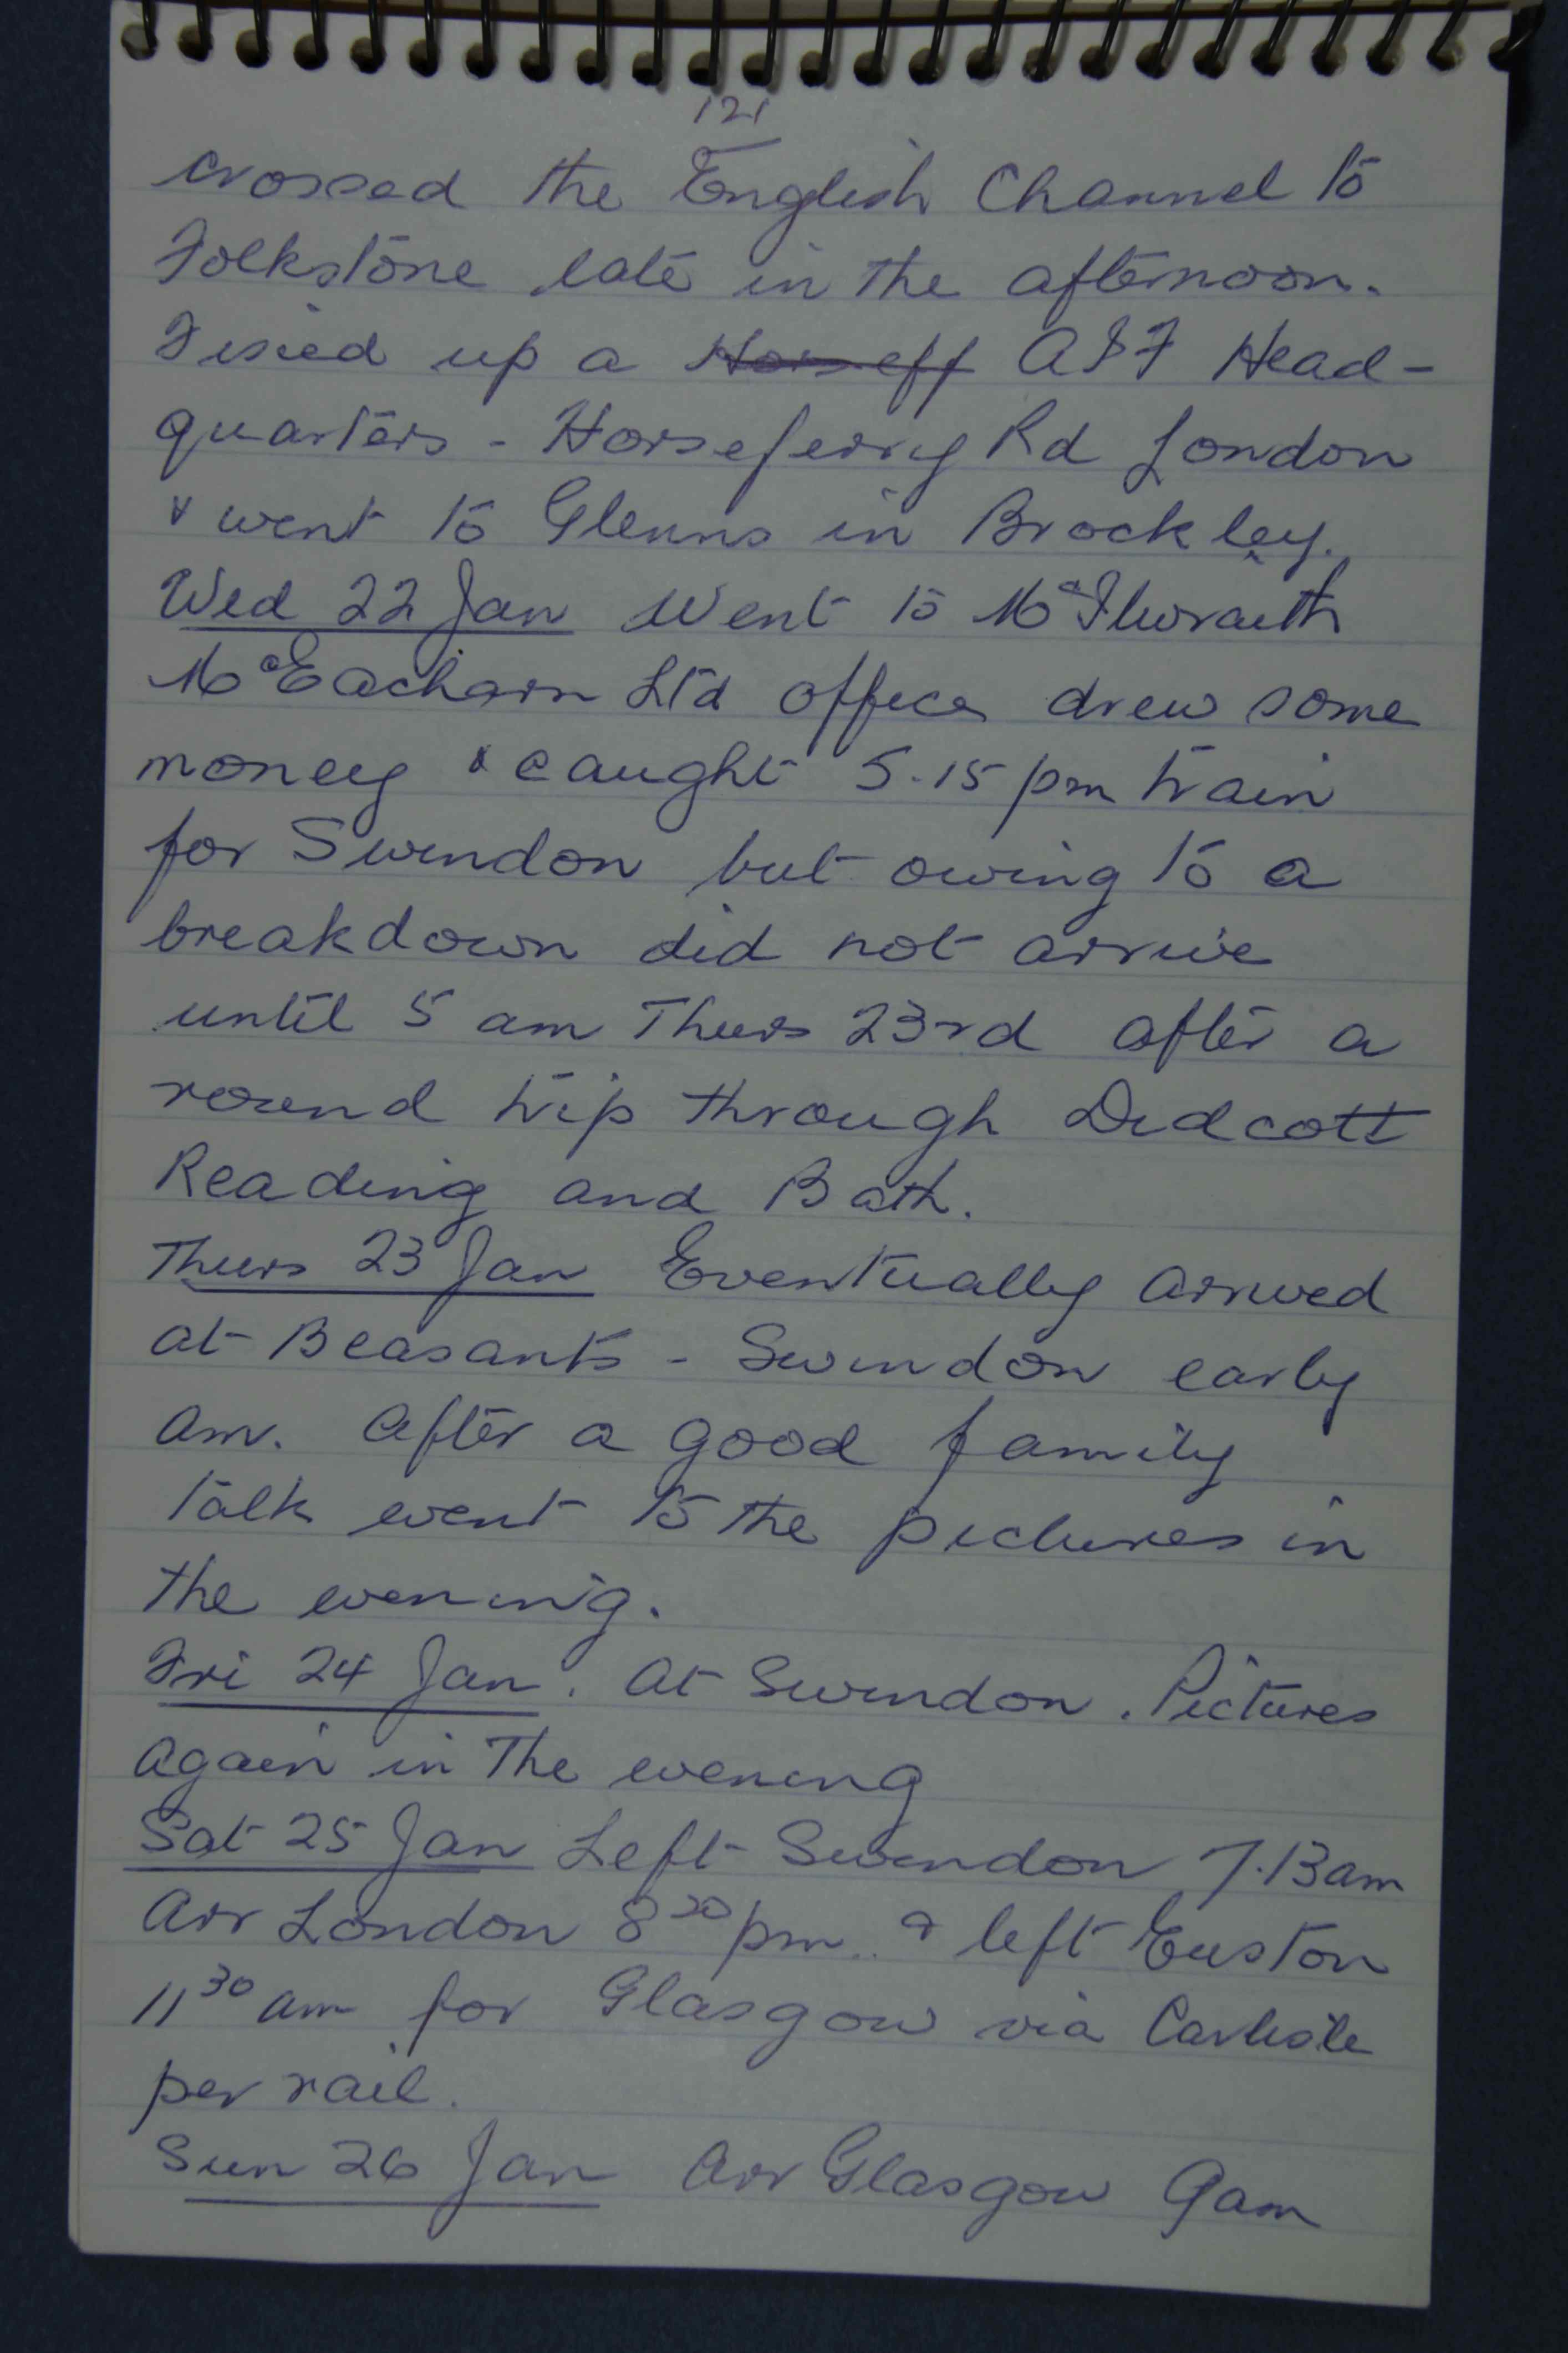 121
crossed the English Channel to
Folkstone late in the afternoon.
Fixed up a Horseff AIF Head-
quarters - Horseferry Rd London
& went to Glenns in Brockley.
Wed 22 Jan Went to McIlwraith
McEacharn Ltd office drew some
money & caught 5.15 pm train
for Swindon but owing to a
breakdown did not arrive
until 5 am Thurs 23rd after a
round trip through Didcott
Reading and Bath.
Thurs 23 Jan Eventually arrived
at Beasants - Swindon early
am. After a good family
talk went to the pictures in
the evening.
Fri 24 Jan. At Swindon. Pictures
again in The evening
Sat 25 Jan Left Swindon 7.13am
Arr London 8 20 pm. & left Euston
11 30 am for Glasgow via Carlisle
per rail.
Sun 26 Jan Arr Glasgow 9am